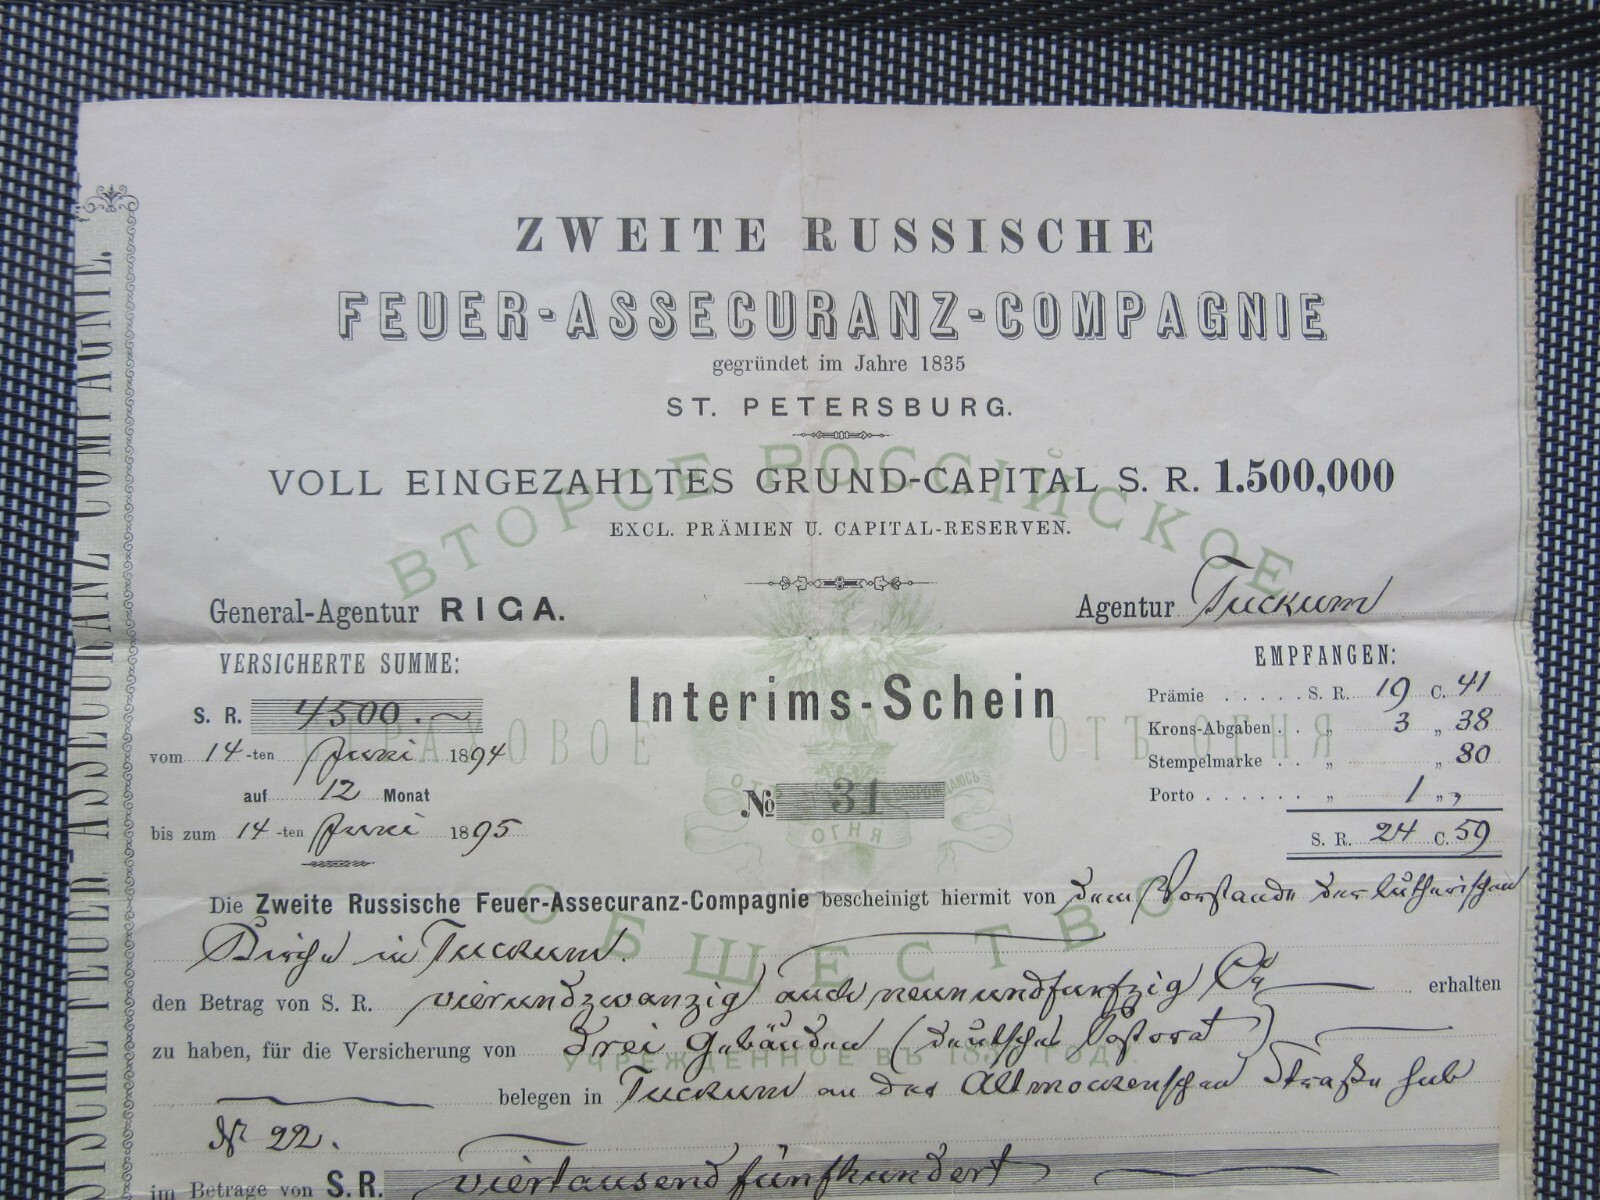 ZWEITE RUSSISCHE
FEUER-ASSECURANZ-COMPAGNIE
gegründet im Jahre 1835
ST. PETERSBURG.
VOLL EINGEZAHLTES GRUND-CAPITAL S. R. 1.500,000
EXCL. PRÄMIEN U. CAPITAL-RESERVEN.
ВТОРОЕ РОССІЙСКОЕ
General-Agentur RIGA.
Agentur Tuckum
VERSICHERTE SUMME:
S. R. 4500.
vom 14-ten Juni 1894
auf 12 Monat
bis zum 14-ten Juni 1895
Interims-Schein
№ 31
EMPFANGEN:
Prämie . . . . . S. R. 19 C. 41
Krons-Abgaben . . „ 3 „ 38
Stempelmarke . . „ „ 80
Porto . . . . . . „ 1 „ „
S. R. 24 C. 59
СТРАХОВОЕ ОТЪ ОГНЯ
ОБЩЕСТВО
УЧРЕЖДЕННОЕ ВЪ 1835 ГОДУ.
Die Zweite Russische Feuer-Assecuranz-Compagnie bescheinigt hiermit von dem Vorstande der lutherischen
Kirche in Tuckum.
den Betrag von S. R. vierundzwanzig auch neunundfunfzig Cop erhalten
zu haben, für die Versicherung von drei Gebäuden (deutsches Pastorat)
belegen in Tuckum an der Altmockenschen Straße sub
№ 22.
im Betrage von S. R. viertausend fünfhundert
FEUER-ASSECURANZ-COMPAGNIE.